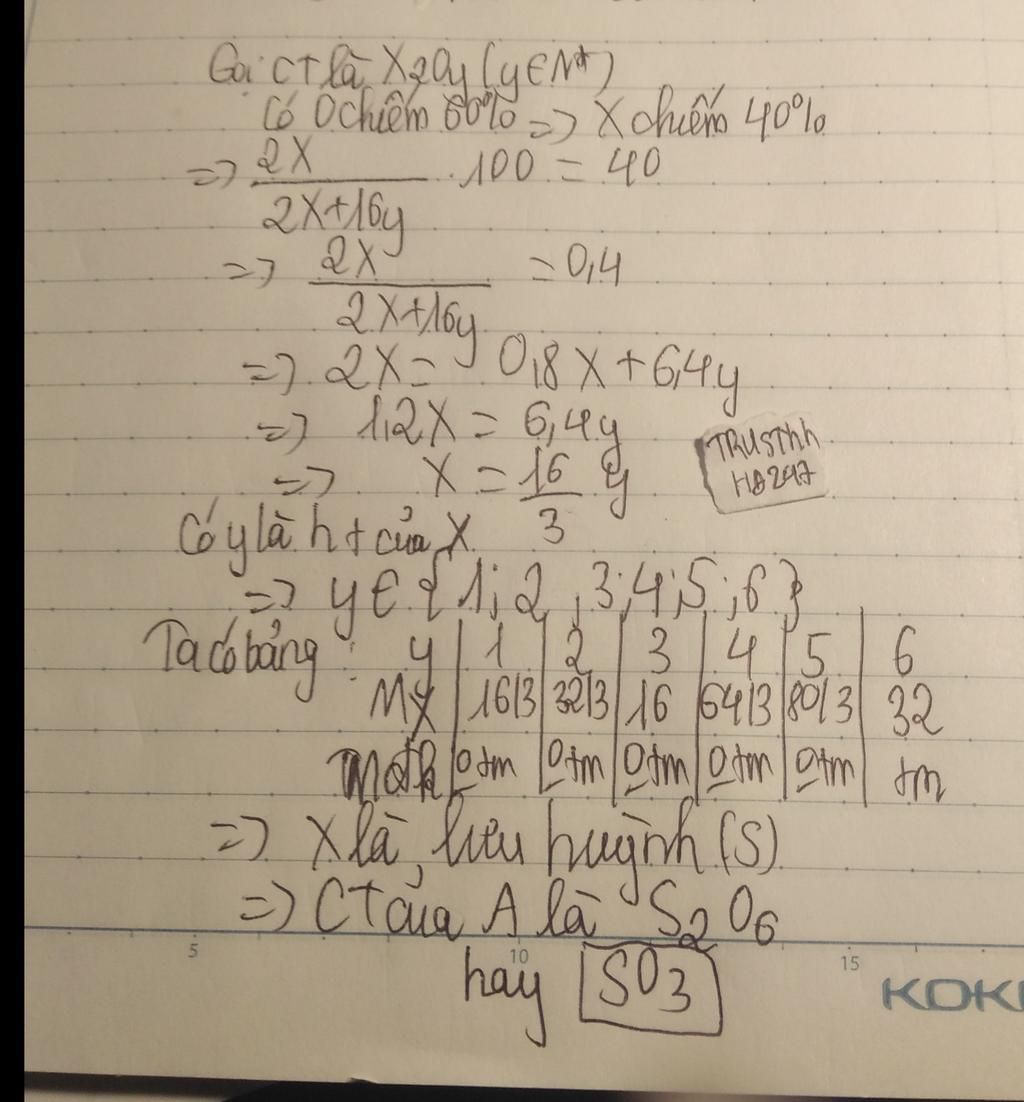 Gọi CT là X2Oy (y∈N*)
Có O chiếm 60% => X chiếm 40%
=> 2X / 2X+16y . 100 = 40
=> 2X / 2X+16y = 0,4
=> 2X = 0,8X + 6,4y
=> 1,2X = 6,4y
=> X = 16/3 y
TRUSThh
HB247
Có y là ht của X
=> y∈{1;2;3;4;5;6}
Ta có bảng: y | 1 | 2 | 3 | 4 | 5 | 6
MX | 16/3 | 32/3 | 16 | 64/3 | 80/3 | 32
0 tm | 0 tm | 0 tm | 0 tm | 0 tm | tm
=> X là lưu huỳnh (S)
=> CT của A là S2O6
5 10 15
hay SO3